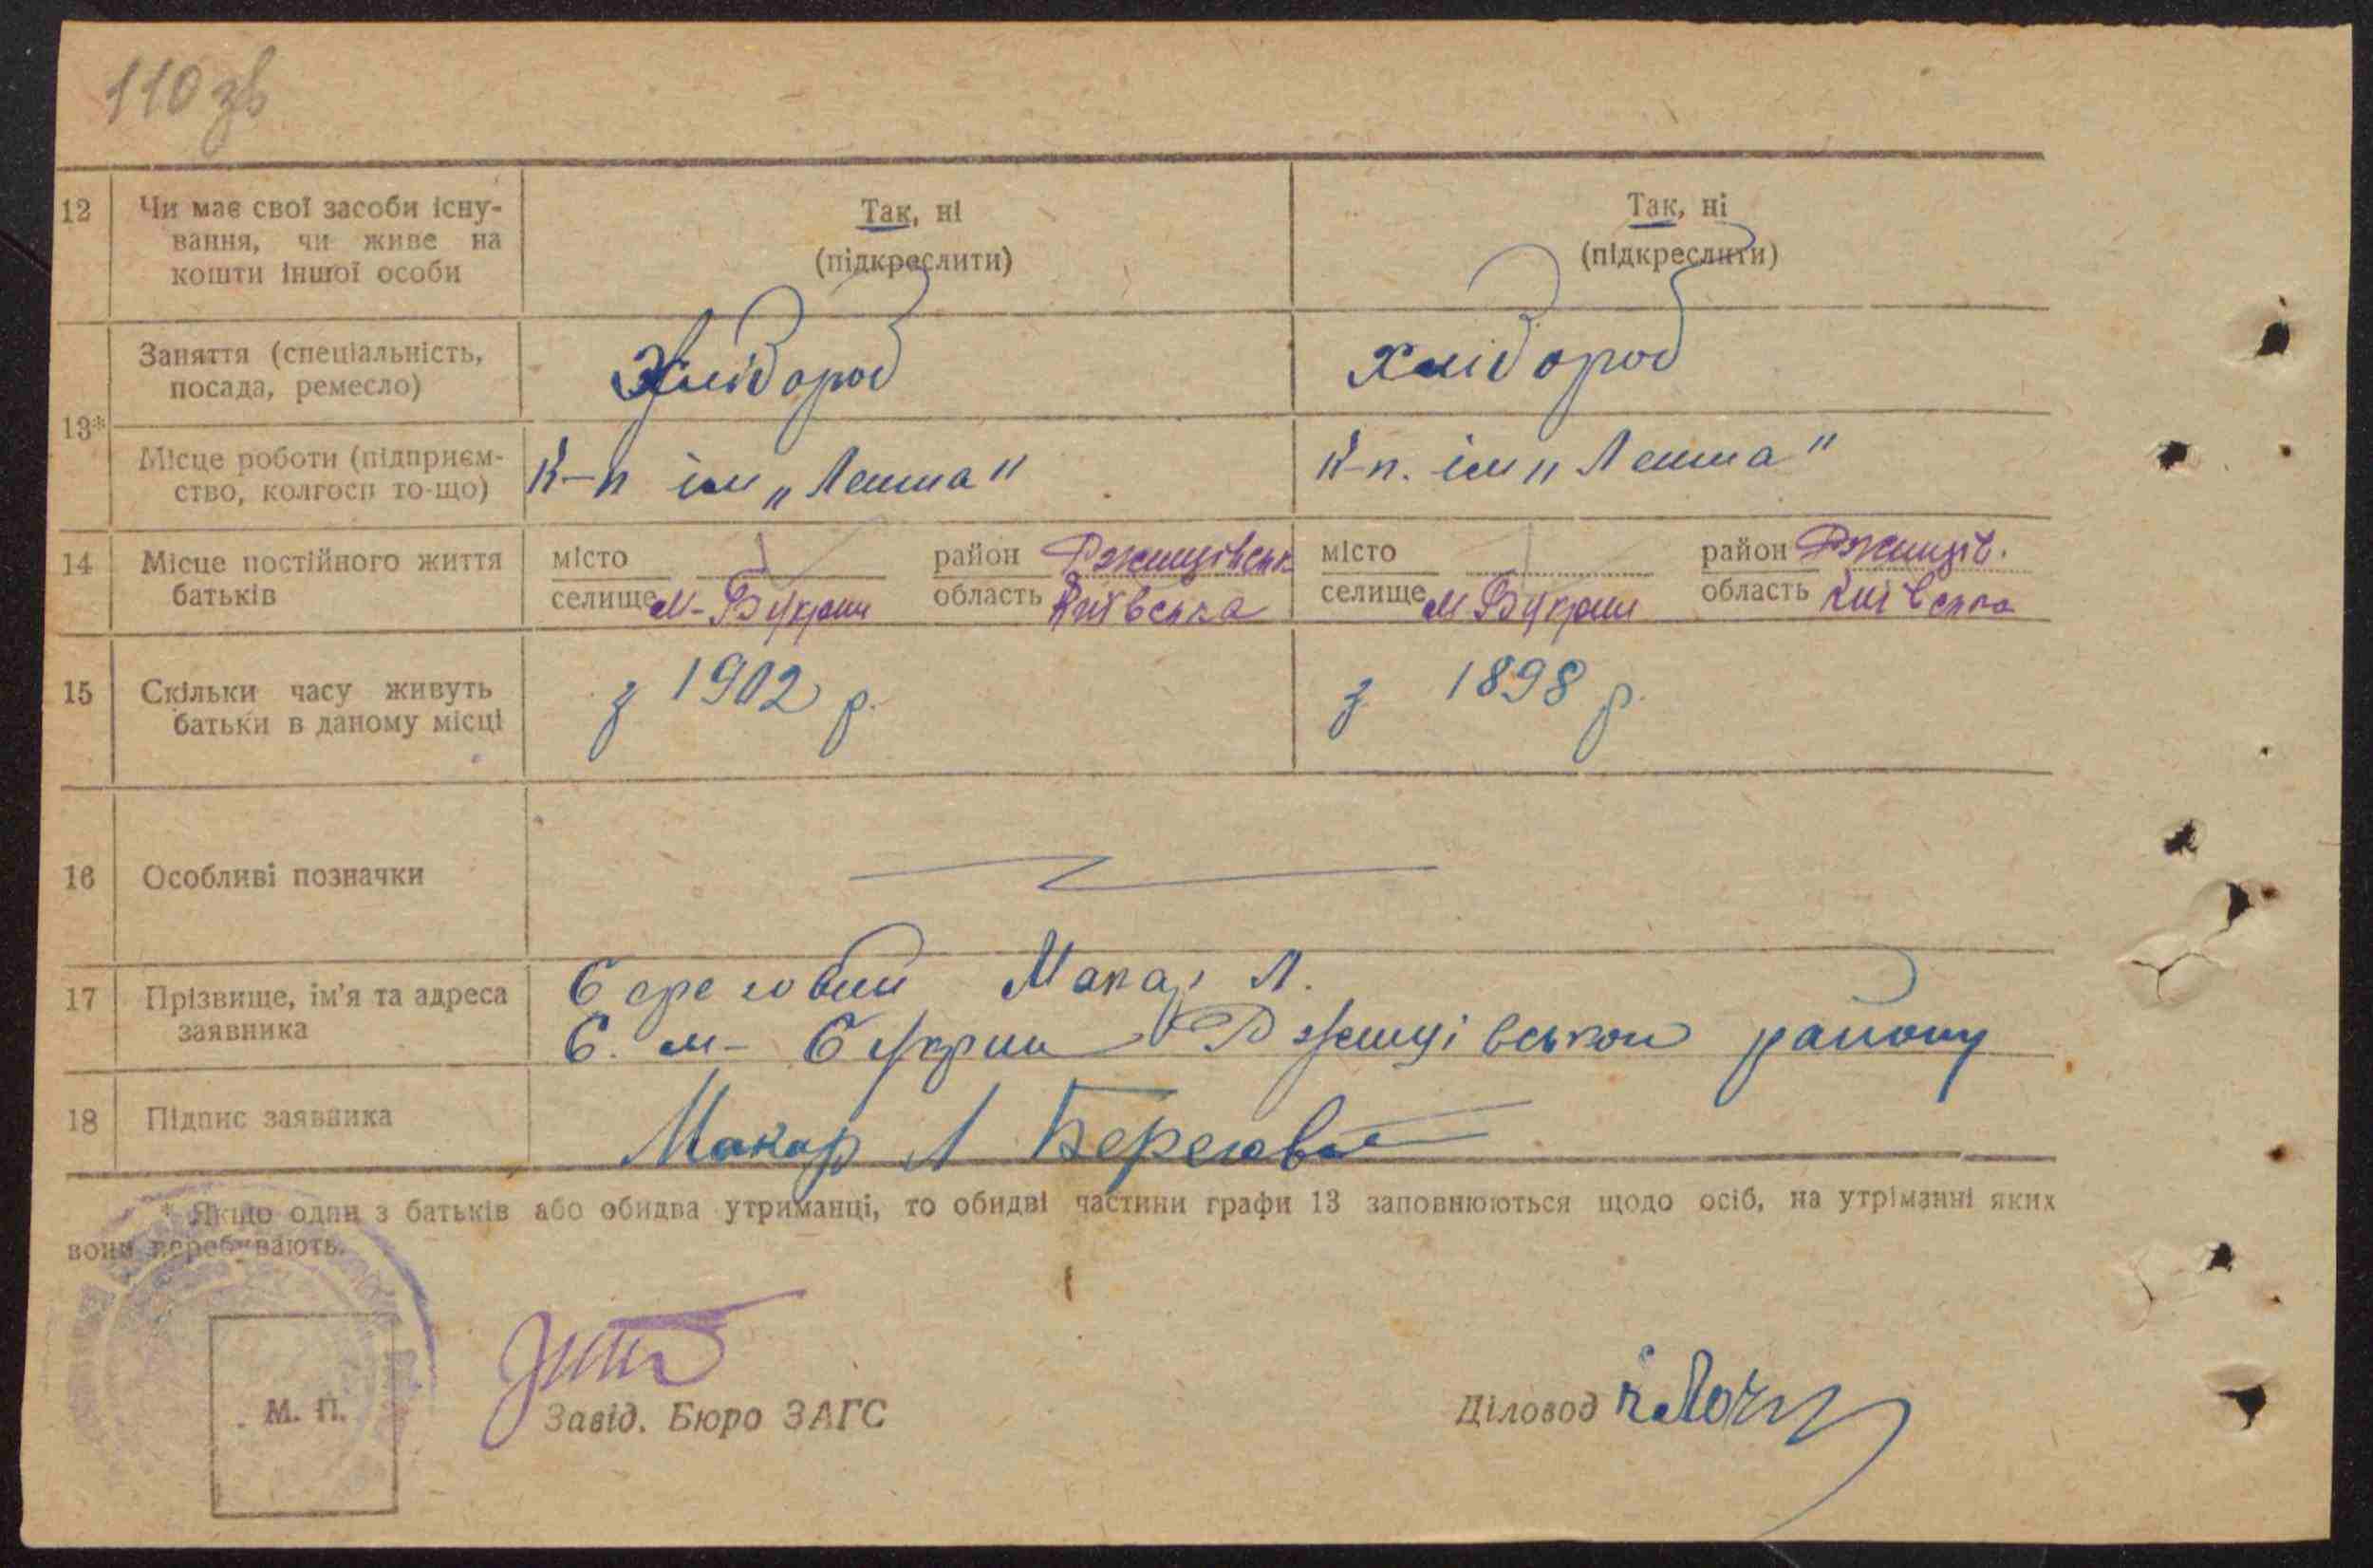 110 зв
12 Чи має свої засоби існу-
вання, чи живе на
кошти іншої особи
Так, ні
(підкреслити)
Так, ні
(підкреслити)
13*
Заняття (спеціальність,
посада, ремесло)
Хлібороб
Хлібороб
Місце роботи (підприєм-
ство, колгосп то-що)
К-п ім „Леніна"
К-п. ім „Леніна"
14 Місце постійного життя
батьків
місто район Ржищівськ
селище М-Букрин область Київська
місто район Ржищів.
селище М Букрин область Київська
15 Скільки часу живуть
батьки в даному місці
з 1902 р.
з 1898 р.
16 Особливі позначки
17 Прізвище, ім'я та адреса
заявника
Береговий Макар Л.
С. м- Букрин Ржищівського району
18 Підпис заявника
Макар Л Берегов
* Якщо один з батьків або обидва утриманці, то обидві частини графи 13 заповнюються щодо осіб, на утріманні яких
вони перебувають.
М. П.
Завід. Бюро ЗАГС
Діловод